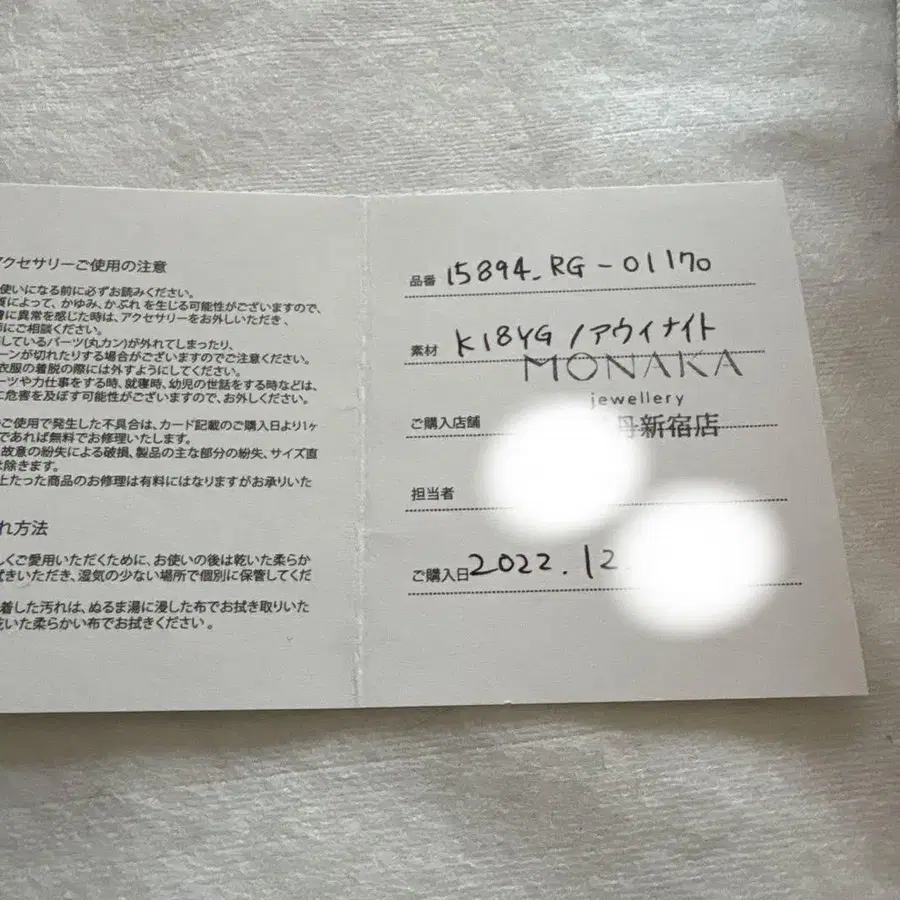 アクセサリーご使用の注意
使いになる前に必ずお読みください。
によって、かゆみ、かぶれ を生じる可能性がございますので、
に異常を感じた時は、アクセサリーをお外しいただき 、
にご相談ください。
しているパーツ(丸カン)が外れてしまったり、
ーンが切れたりする場合がございますのでご注意ください。
衣服の着脱の際には外すようにしてください。
ーツや力仕事をする時、就寝時、幼児の世話をする時などは、
危害を及ぼす可能性がございますので、お外しください。
ご使用で発生した不具合は、カード記載のご購入日より1ヶ
であれば無料でお修理いたします。
故意の紛失による破損、製品の主な部分の紛失、サイズ直
は除きます。
上たった商品のお修理は有料にはなりますがお承りいた
れ方法
しくご愛用いただくために、お使いの後は乾いた柔らか
拭きいただき、湿気の少ない場所で個別に保管してくだ
着した汚れは、ぬるま湯に浸した布でお拭き取りいた
乾いた柔らかい布でお拭きください。
品番 15894_RG-01170
素材 K18YG/アウイナイト
MONAKA
jewellery
ご購入店舗 丹新宿店
担当者
ご購入日 2022.12.